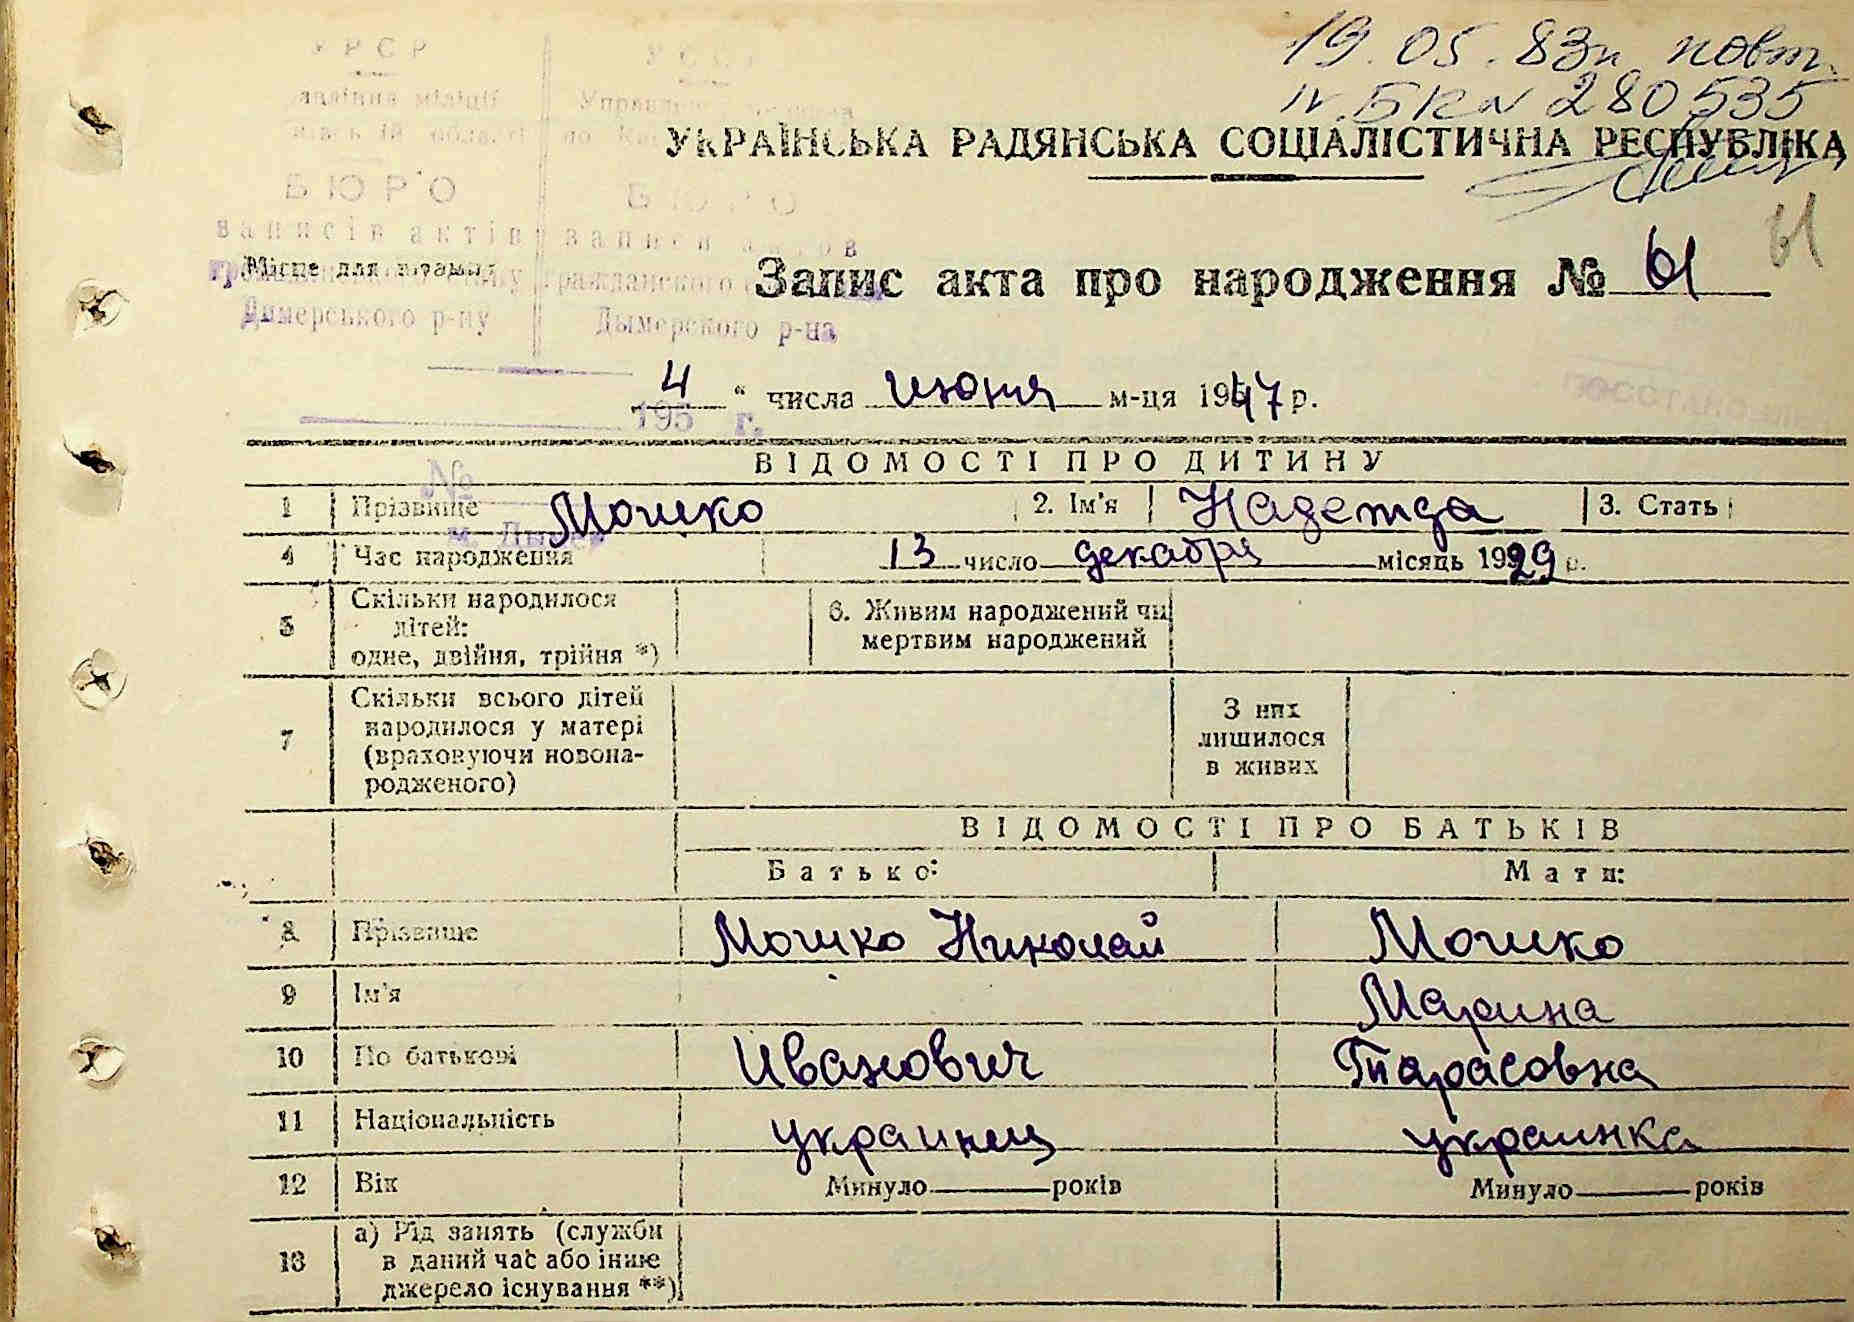 19.05.83 повт.
IV-БК № 280535
УРСР УССР
міліції
області по
УКРАЇНСЬКА РАДЯНСЬКА СОЦІАЛІСТИЧНА РЕСПУБЛІКА
БЮРО БЮРО
записів актів записи актов
Місце для штампа
гражданского
Запис акта про народження № 61 61
Димерського р-ну Дымерского р-на
4 " числа июня м-ця 1947 р.
195 г.
ВІДОМОСТІ ПРО ДИТИНУ
№
1 Прізвище Мошко 2. Ім'я Надежда 3. Стать
м. Дымер
4 Час народження 13 число декабря місяць 1929 р.
5 Скільки народилося дітей: одне, двійня, трійня *) 6. Живим народжений чи мертвим народжений
7 Скільки всього дітей народилося у матері (враховуючи новонародженого) З них лишилося в живих
ВІДОМОСТІ ПРО БАТЬКІВ
Батько: Мати:
8 Прізвище Мошко Николай Мошко
9 Ім'я Марина
10 По батькові Иванович Тарасовна
11 Національність украинец украинка
12 Вік Минуло років Минуло років
13 а) Рід занять (служби в даний час або інше джерело існування **)